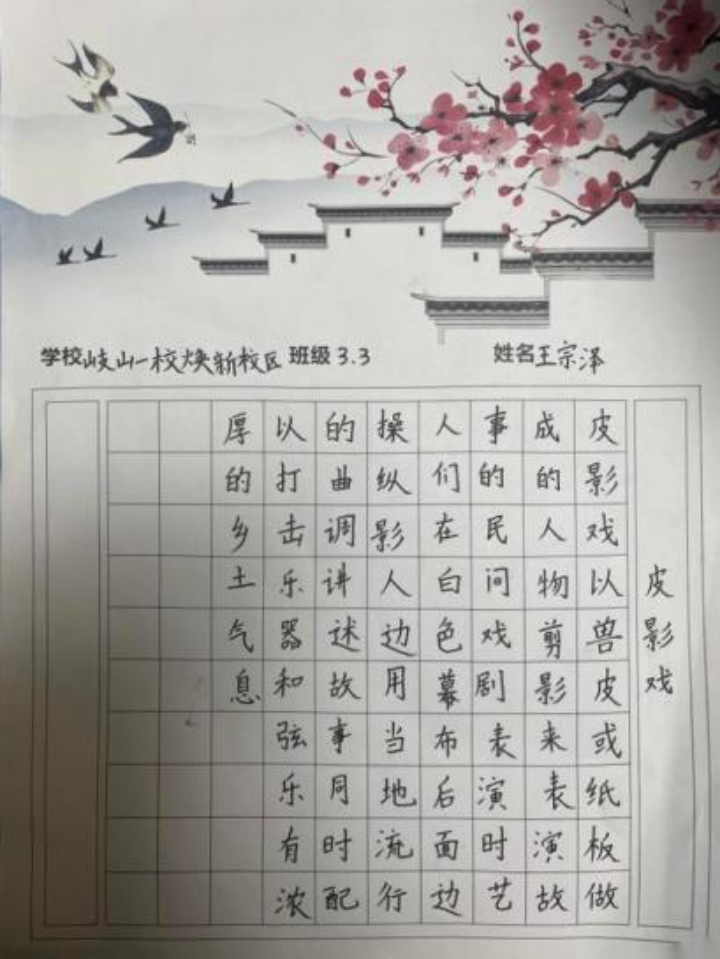 学校岐山一校焕新校区 班级3.3 姓名王宗泽
皮影戏
皮影戏以兽皮或纸板做
成的人物剪影来表演故
事的民间戏剧表演时艺
人们在白色幕布后面边
操纵影人边用当地流行
的曲调讲述故事同时配
以打击乐器和弦乐有浓
厚的乡土气息